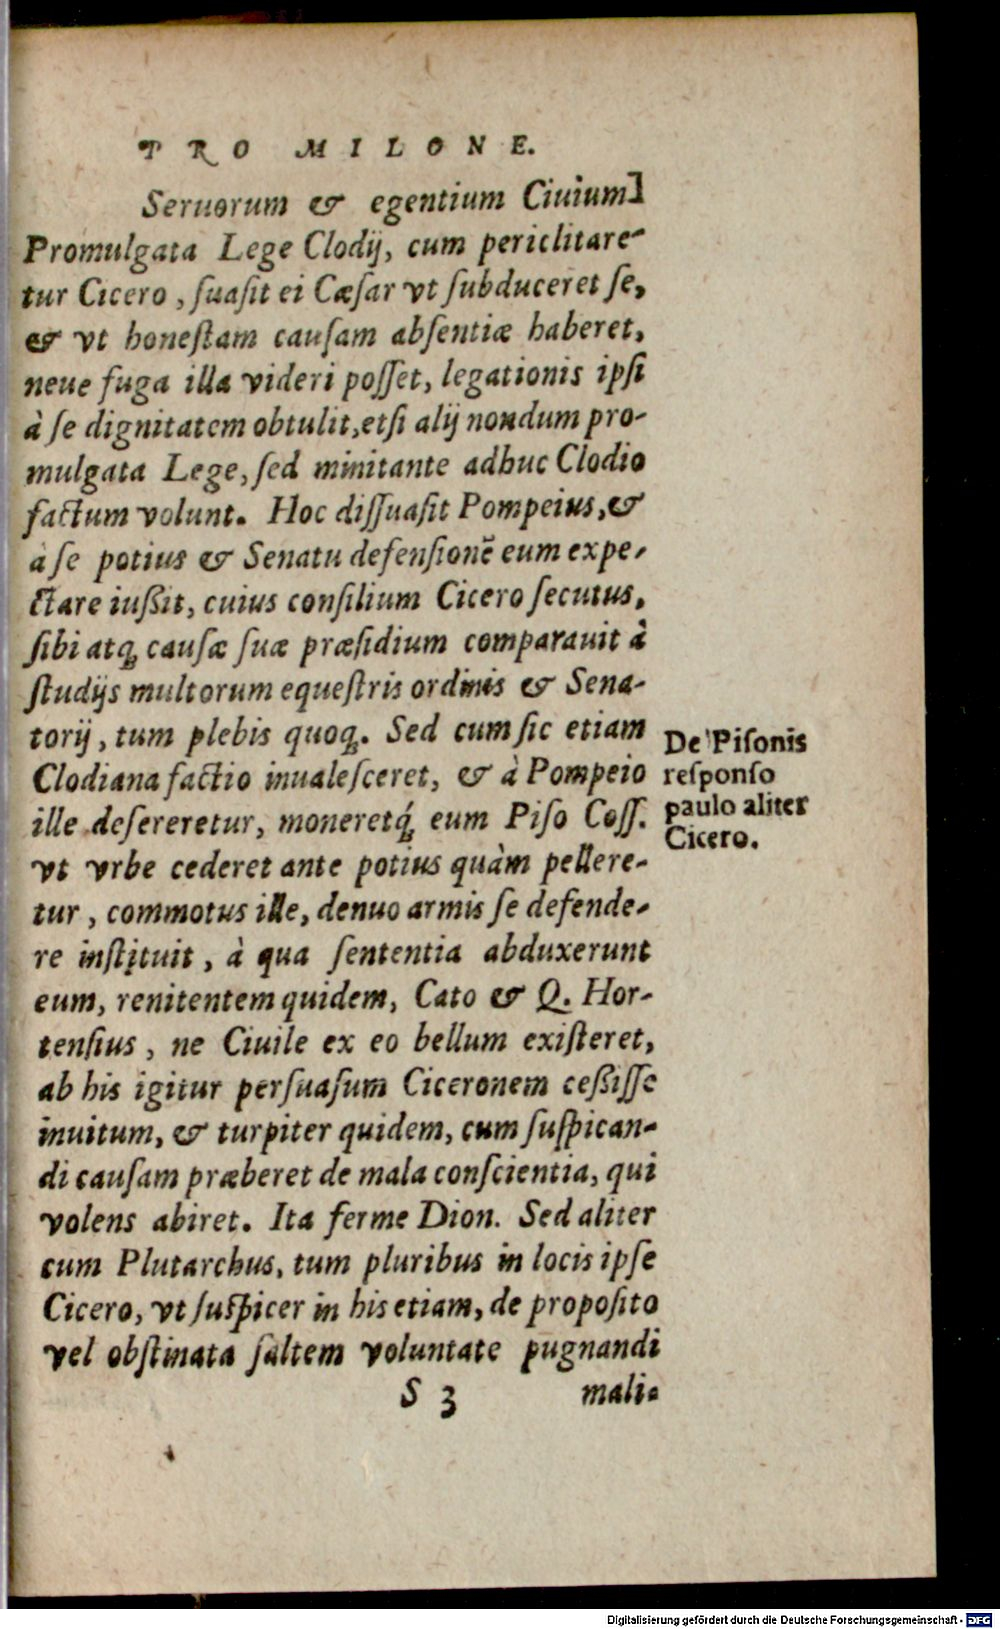 PRO MILONE.
Seruorum & egentium Ciuium]
Promulgata Lege Clodij, cum periclitare-
tur Cicero, ſuaſit ei Cæſar vt ſubduceret ſe,
& vt honeſtam cauſam abſentiæ haberet,
neue fuga illa videri poſſet, legationis ipſi
à ſe dignitatem obtulit, etſi alij nondum pro-
mulgata Lege, ſed minitante adhuc Clodio
factum volunt. Hoc diſſuaſit Pompeius, &
à ſe potius & Senatu defenſionē eum expe-
ctare iußit, cuius conſilium Cicero ſecutus,
ſibi atq; cauſæ ſuæ præſidium comparauit à
ſtudijs multorum equeſtris ordinis & Sena-
torij, tum plebis quoq;. Sed cum ſic etiam
Clodiana factio inualeſceret, & à Pompeio
ille deſereretur, moneretq́; eum Piſo Coſſ.
vt vrbe cederet ante potius quàm pellere-
tur, commotus ille, denuo armis ſe defende-
re inſtituit, à qua ſententia abduxerunt
eum, renitentem quidem, Cato & Q. Hor-
tenſius, ne Ciuile ex eo bellum exiſteret,
ab his igitur perſuaſum Ciceronem ceßiſſe
inuitum, & turpiter quidem, cum ſuſpican-
di cauſam præberet de mala conſcientia, qui
volens abiret. Ita ferme Dion. Sed aliter
cum Plutarchus, tum pluribus in locis ipſe
Cicero, vt ſuſpicer in his etiam, de propoſito
vel obſtinata ſaltem voluntate pugnandi
S 3 mali-
De Piſonis
reſponſo
paulo aliter
Cicero.
Digitalisierung gefördert durch die Deutsche Forschungsgemeinschaft - DFG